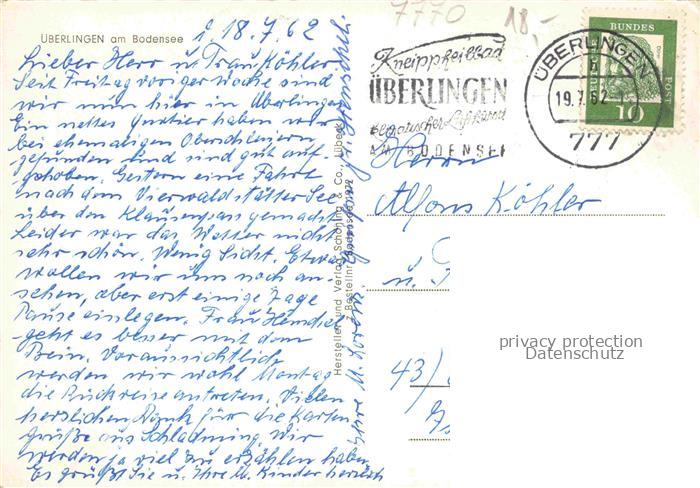 ÜBERLINGEN am Bodensee
Ü. 18.7.62
Lieber Herr u. Frau Köhler.
Seit Freitag voriger Woche sind
wir nun hier in Überlingen
Ein nettes Quartier haben wir
bei ehemaligen Oberschlesiern
gefunden und sind gut auf-
gehoben. Gestern eine Fahrt
nach dem Vierwaldstätter See
über den Klausenpass gemacht
Leider war das Wetter nicht
sehr schön. Wenig Sicht. Etwas
wollen wir uns noch an-
sehen, aber erst einige Tage
Pause einlegen. Frau Henschel
geht es besser mit dem
Bein. Voraussichtlich
werden wir wohl Montag
die Rückreise antreten. Vielen
herzlichen Dank für die Karten-
grüße aus Schladming. Wir
werden ja viel zu erzählen haben
Es grüßt Sie u. Ihre lb. Kinder herzlich
Ihre M. Henschel.
Hersteller und Verlag Schöning & Co., Lübeck
Bestellnr.
7770
18,-
Kneippheilbad
ÜBERLINGEN
AM BODENSEE
ÜBERLINGEN
19.7.62
777
DEUTSCHE BUNDESPOST
10
Herrn
Alfons Köhler
u.
43/
privacy protection
Datenschutz